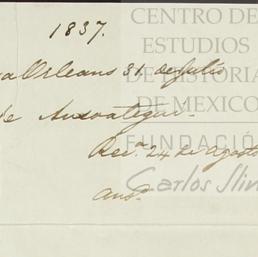 1837.
CENTRO DE
ESTUDIOS
DE HISTORIA
DE MEXICO
FUNDACIÓN
Carlos Slim
Orleans 31 de Julio
de
Rec.ª 24 de Agosto